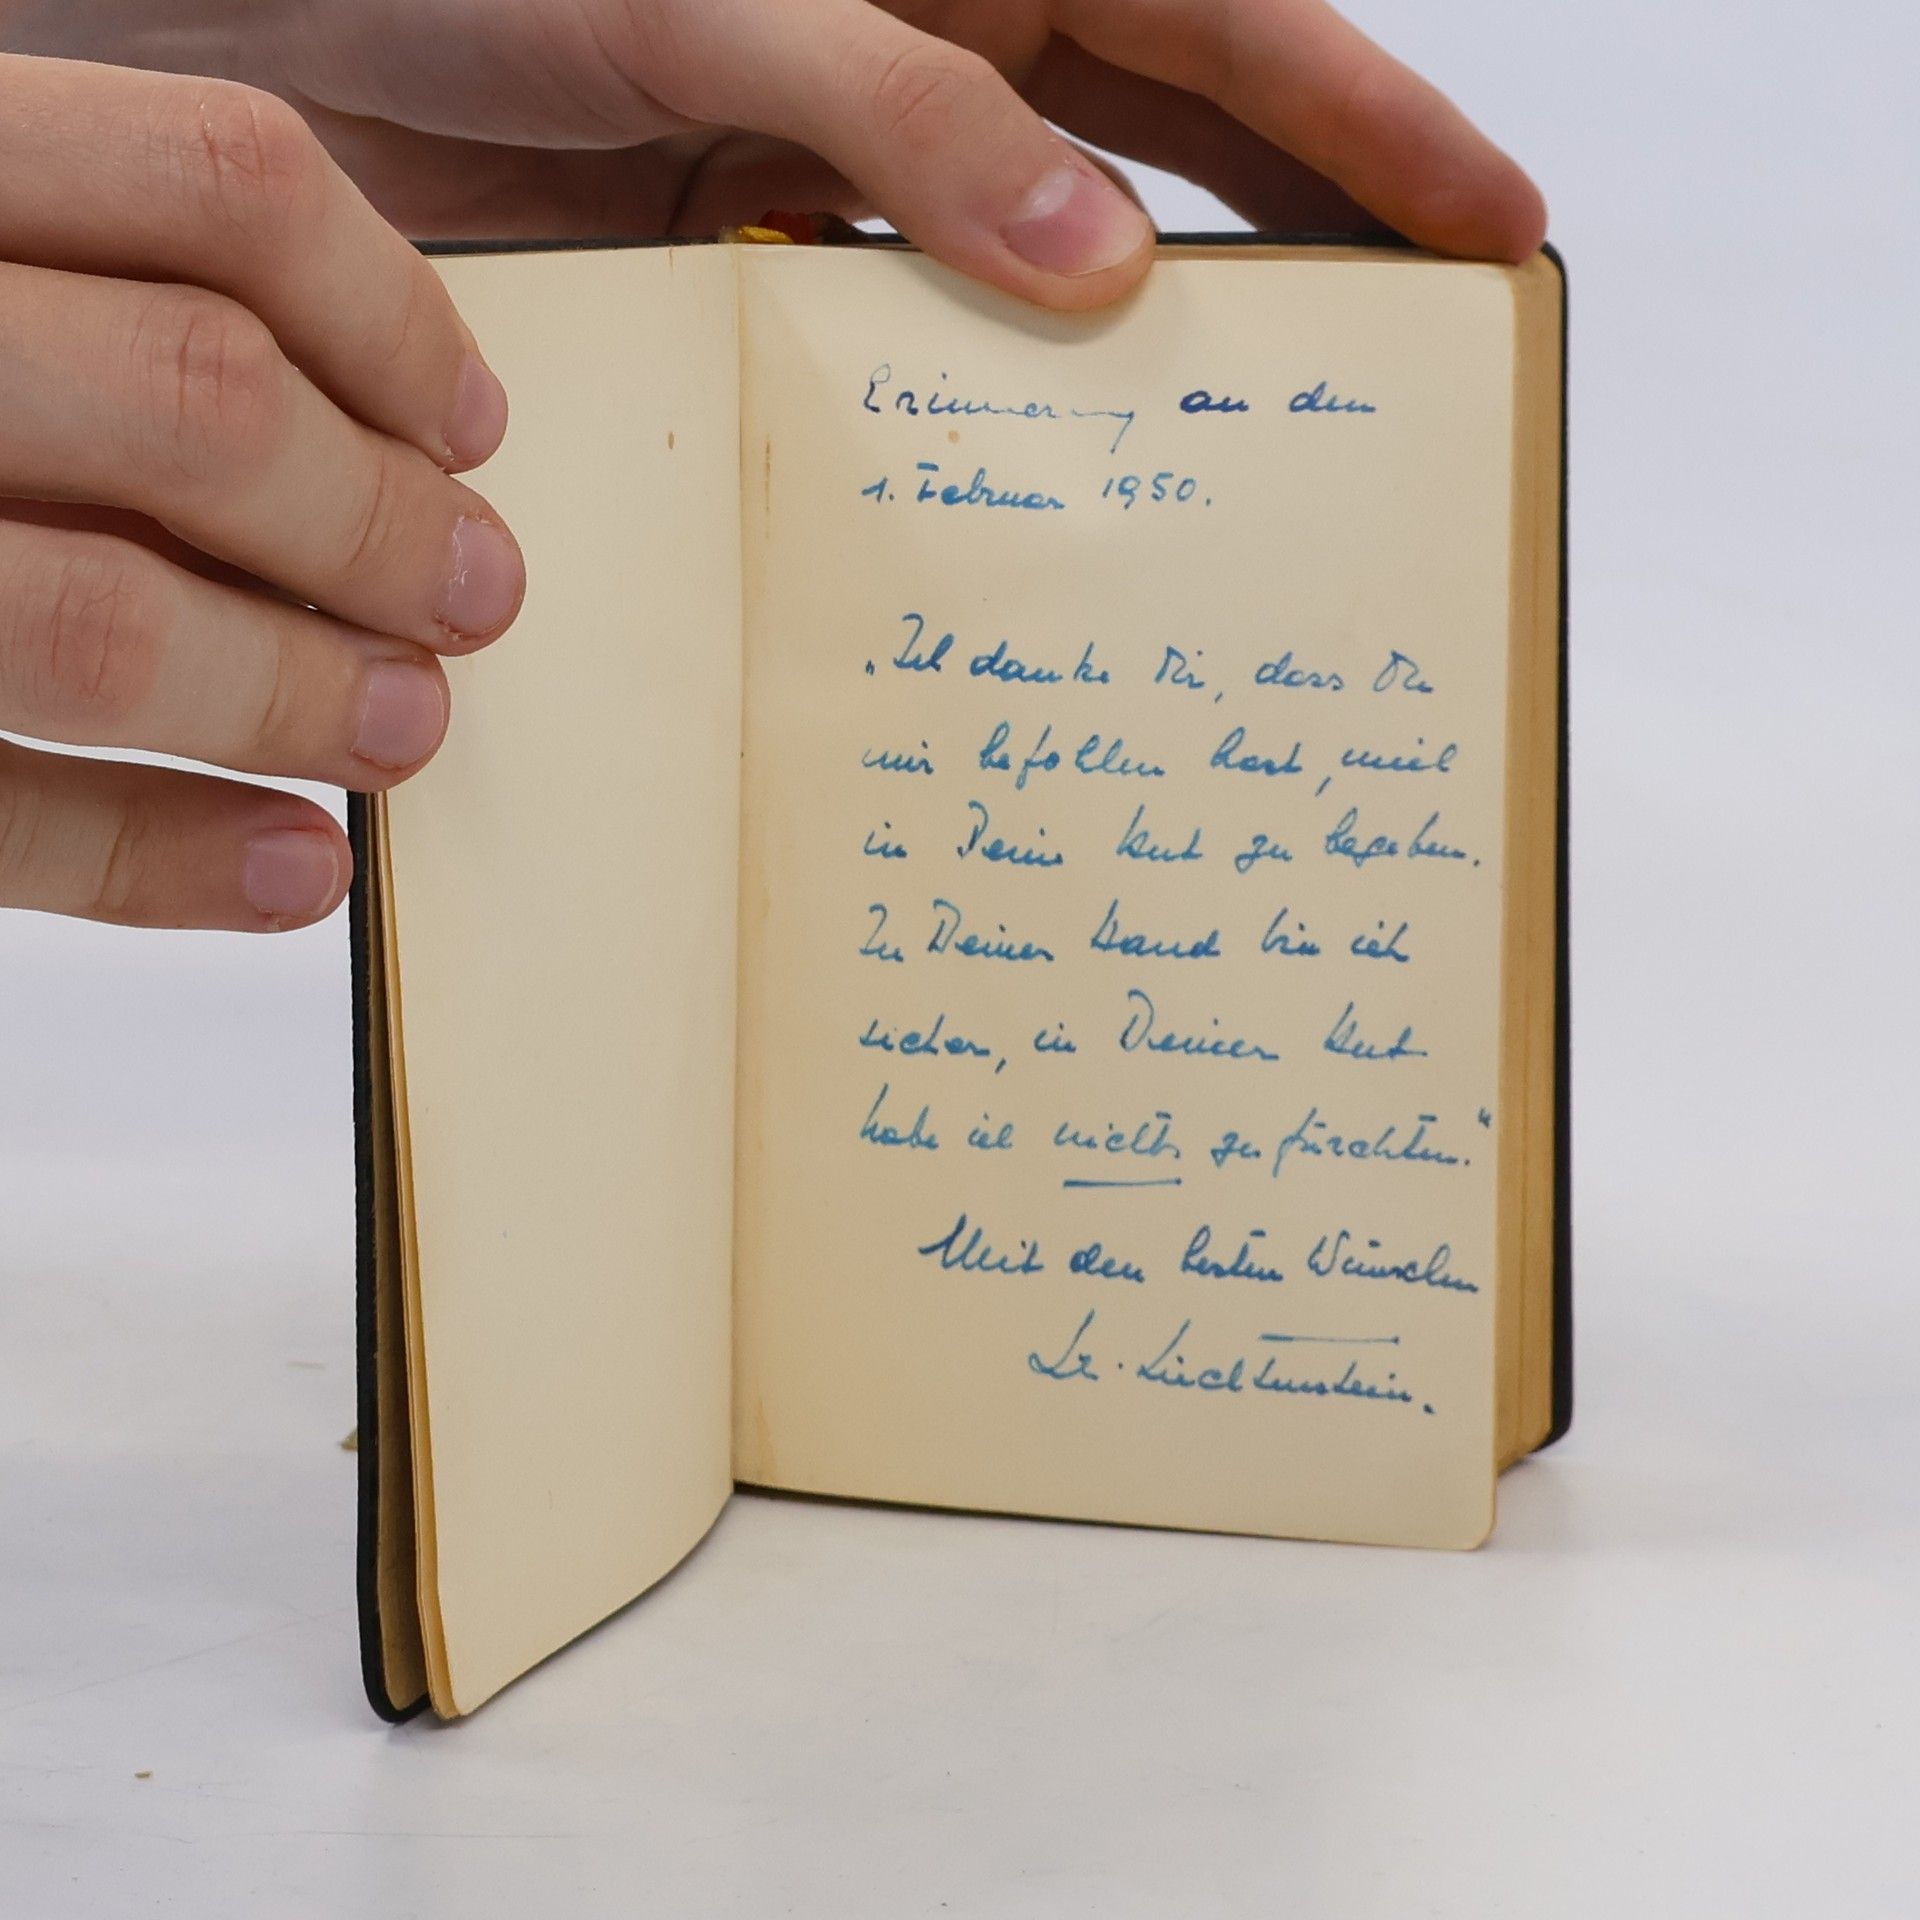 Erinnerung an den
1. Februar 1950.
„Ich danke Dir, dass Du
mir befohlen hast, mich
in Deine Hut zu begeben.
In Deiner Hand bin ich
sicher, in Deiner Hut
habe ich nichts zu fürchten.“
Mit den besten Wünschen
Dr. Liechtenstein.